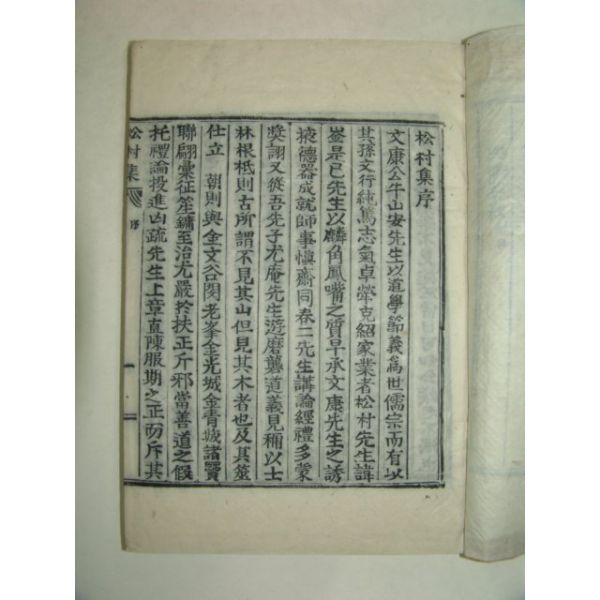 松村集序
文康公牛山安先生以道學節義爲世儒宗而有以
其孫文行純篤志氣卓犖克紹家業者松村先生諱
峑是已先生以麟角鳳嘴之質早承文康先生之誘
掖德器成就師事愼齋同春二先生講論經禮多蒙
奬詡又從吾先子尤庵先生遊磨礱道義見稱以士
林根柢則古所謂不見其山但見其木者也及其筮
仕立 朝則與金文谷閔老峯金光城金靑城諸賢
聯翩彙征笙鏞至治尤嚴於扶正斥邪當善道之假
托禮論投進凶疏先生上章直陳服期之正而斥其
松村集 序 一